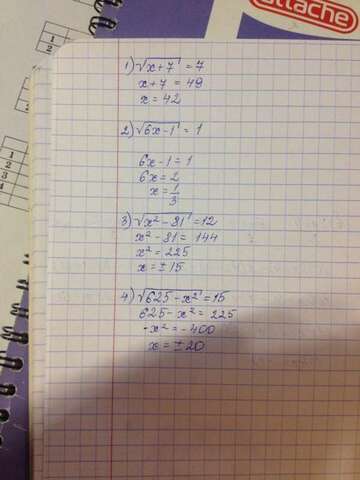 attache
1) √x+7 = 7
x+7 = 49
x = 42
2) √6x-1 = 1
6x-1 = 1
6x = 2
x = 1/3
3) √x² - 81 = 12
x² - 81 = 144
x² = 225
x = ±15
4) √625 - x² = 15
625 - x² = 225
-x² = -400
x = ±20
1
2
1
2
3